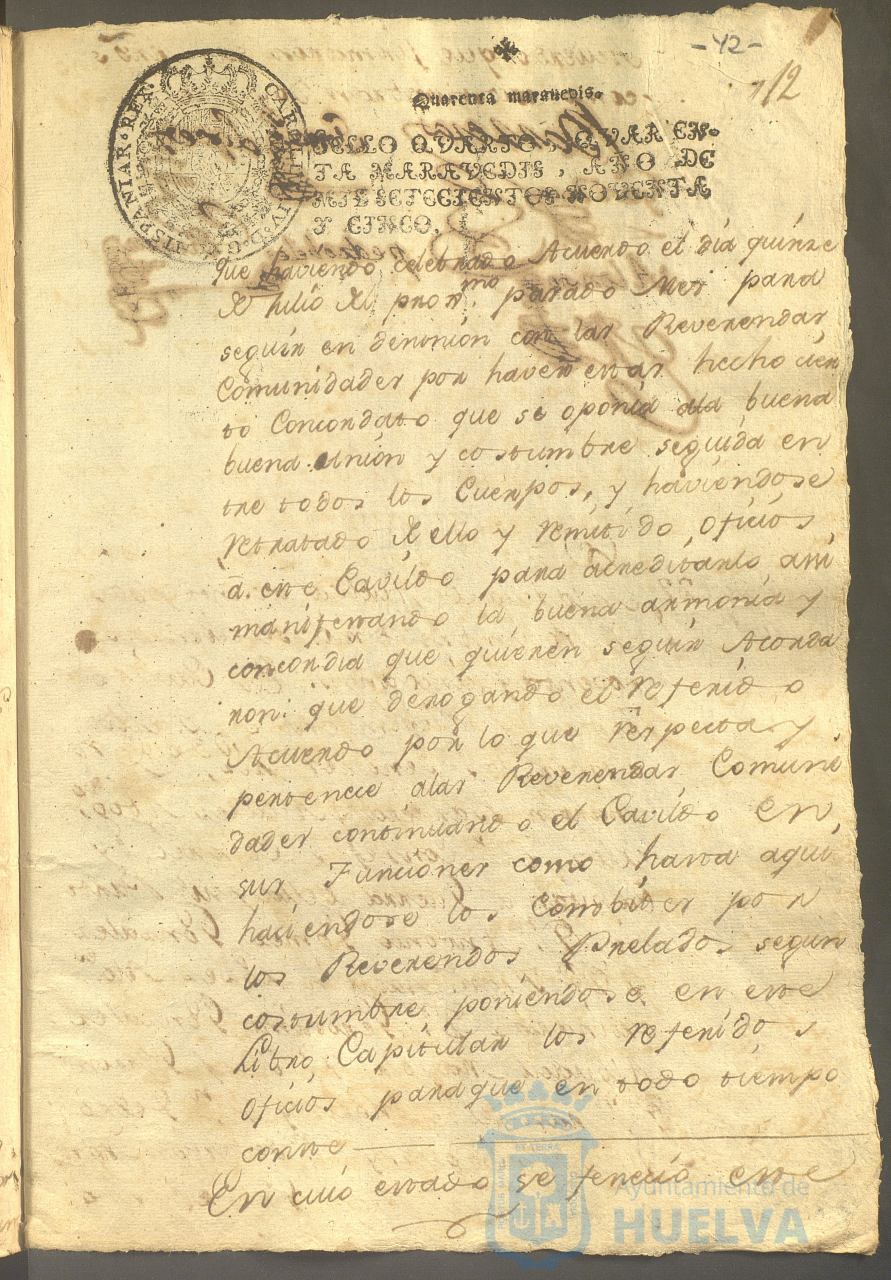 -42-
712
Quarenta marauedis.
SELLO QVARTO, QVAREN-
TA MARAVEDIS, AÑO DE
MIL SETECIENTOS NOVENTA
Y CINCO.
HISPANIAR·REX· CAROLVS·IV·D·G·
Que haviendo celebrado Acuerdo el día quinze
de Julio del prox.mo pasado Mes para
seguir en demnión con las Reverendas
Comunidades por haver estas hecho cier
to Concordato que se oponia ala buena
buena unión y costumbre seguida en
tre todos los Cuerpos, y haviendose
retratado de ello y remitido, oficios
a este Cavildo para acreditarlo asi
manifestando la buena armonia y
concordia que quieren seguir Acorda
ron: que derogando el referido
Acuerdo por lo que respecta y
pertenece alas Reverendas Comuni
dades continuando el Cavildo en
sus Funciones como hasta aqui
haciendose los Combites por
los Reverendos Prelados segun
costumbre poniendose en este
Libro Capitular los referidos
Oficios paraque en todo tiempo
conste
En cuio estado se feneció este
Ayuntamiento de
HUELVA